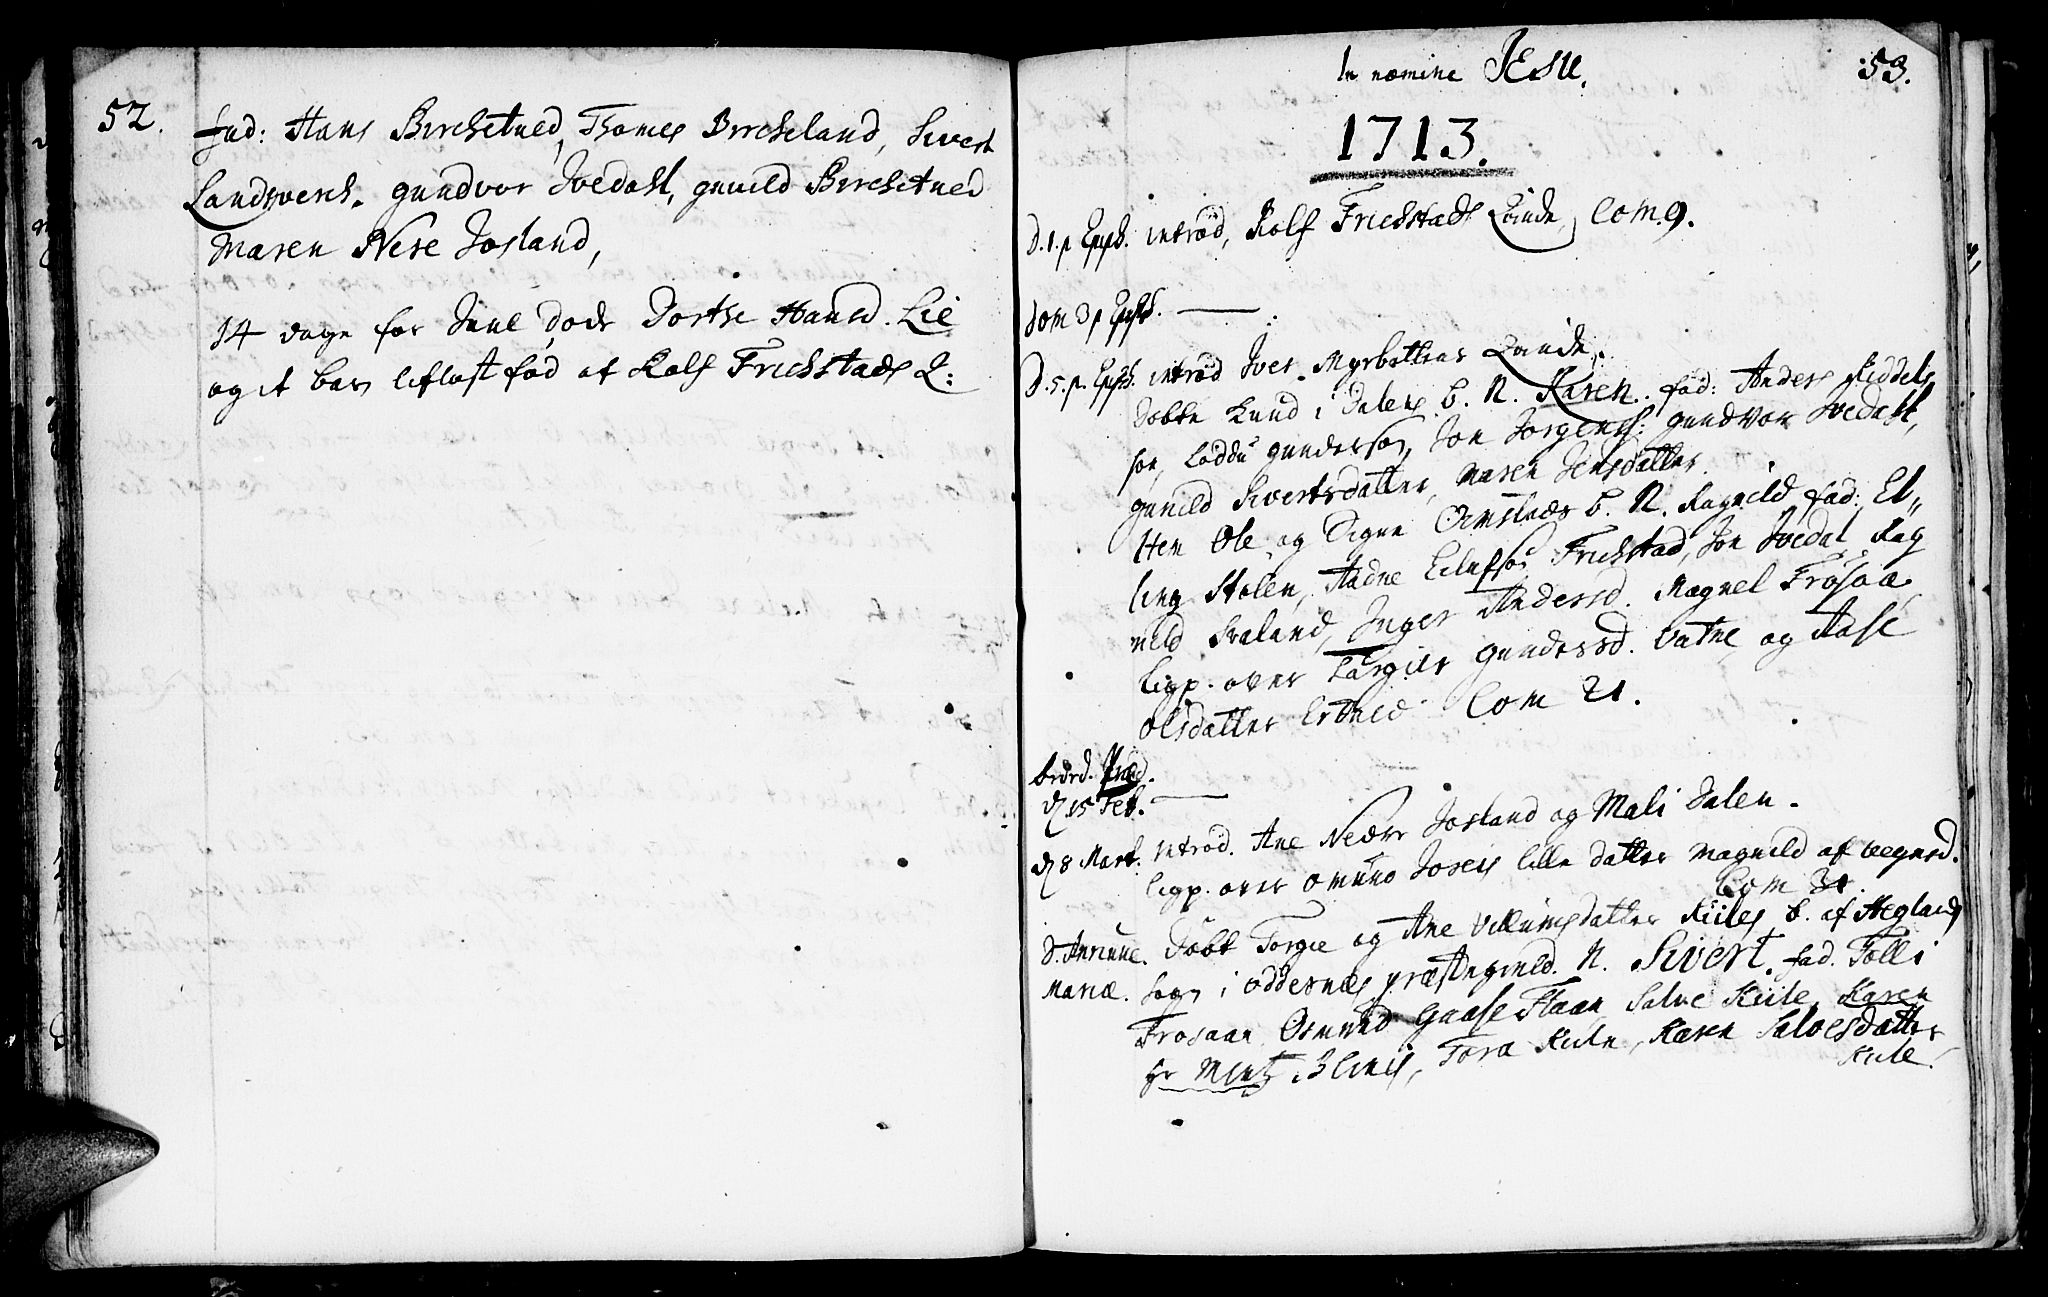 52.
fad: Hans Birchetued, Thomes Bircheland, Sivert
Landsverch. gundvor Ivedahl, gunild Birchetued
Maren Nere Josland,
14 dage for Juul døde Dorthe Hansd. Lie
og it barn lifløst fød af Rolf Frichstads Q:
53.
In nomine JESU.
1713.
D. 1. p Epiph. introd, Rolf Frichstads Qvinde, Com 9.
Dom 3 p Epiph. —
D. 5. p. Epiph. introd Iver Myrbottens Qvinde.
Døbte Knud i Dalens b. N. Karen. fad: Anders Siddels
søn, Loddu gundersøn, Jon Jorgens: gundvor Ivedahl,
gunild Sivertsdatter, Maren Jensdatter.
Item Ole og Signe Ormslads b. N. Ragnild fad: El„
ling Stolen, Aadne Eilufsøn Frichstad, Jon Ivedal, Rag
nild Svaland, Inger Andersd. Magnel Frøsaa
ligp. over Targier gundersd. Vatne og Aase
Olsdatter Ertued Com 21.
ordord. Præd.
d 15 Feb. —
d 8 Mart. Introd. Ane Nedre Josland og Mali Dalen.
ligp. over Omund Joseis lille datter Magnild af Vegusd.
Com 31.
D. Annunc. Døbt Torgie og Ane Villumsdatter Kiiles b. af Hegland
Mariæ. Sogn i Oddernæs præstegield. N. Sivert. fad. Tolli
Frosaan Osmund Gaase Flaan Salve Kiile, Karen
Hr Mentz Blinis, Tora Kiile, Karen Salvesdatter
Kiile.